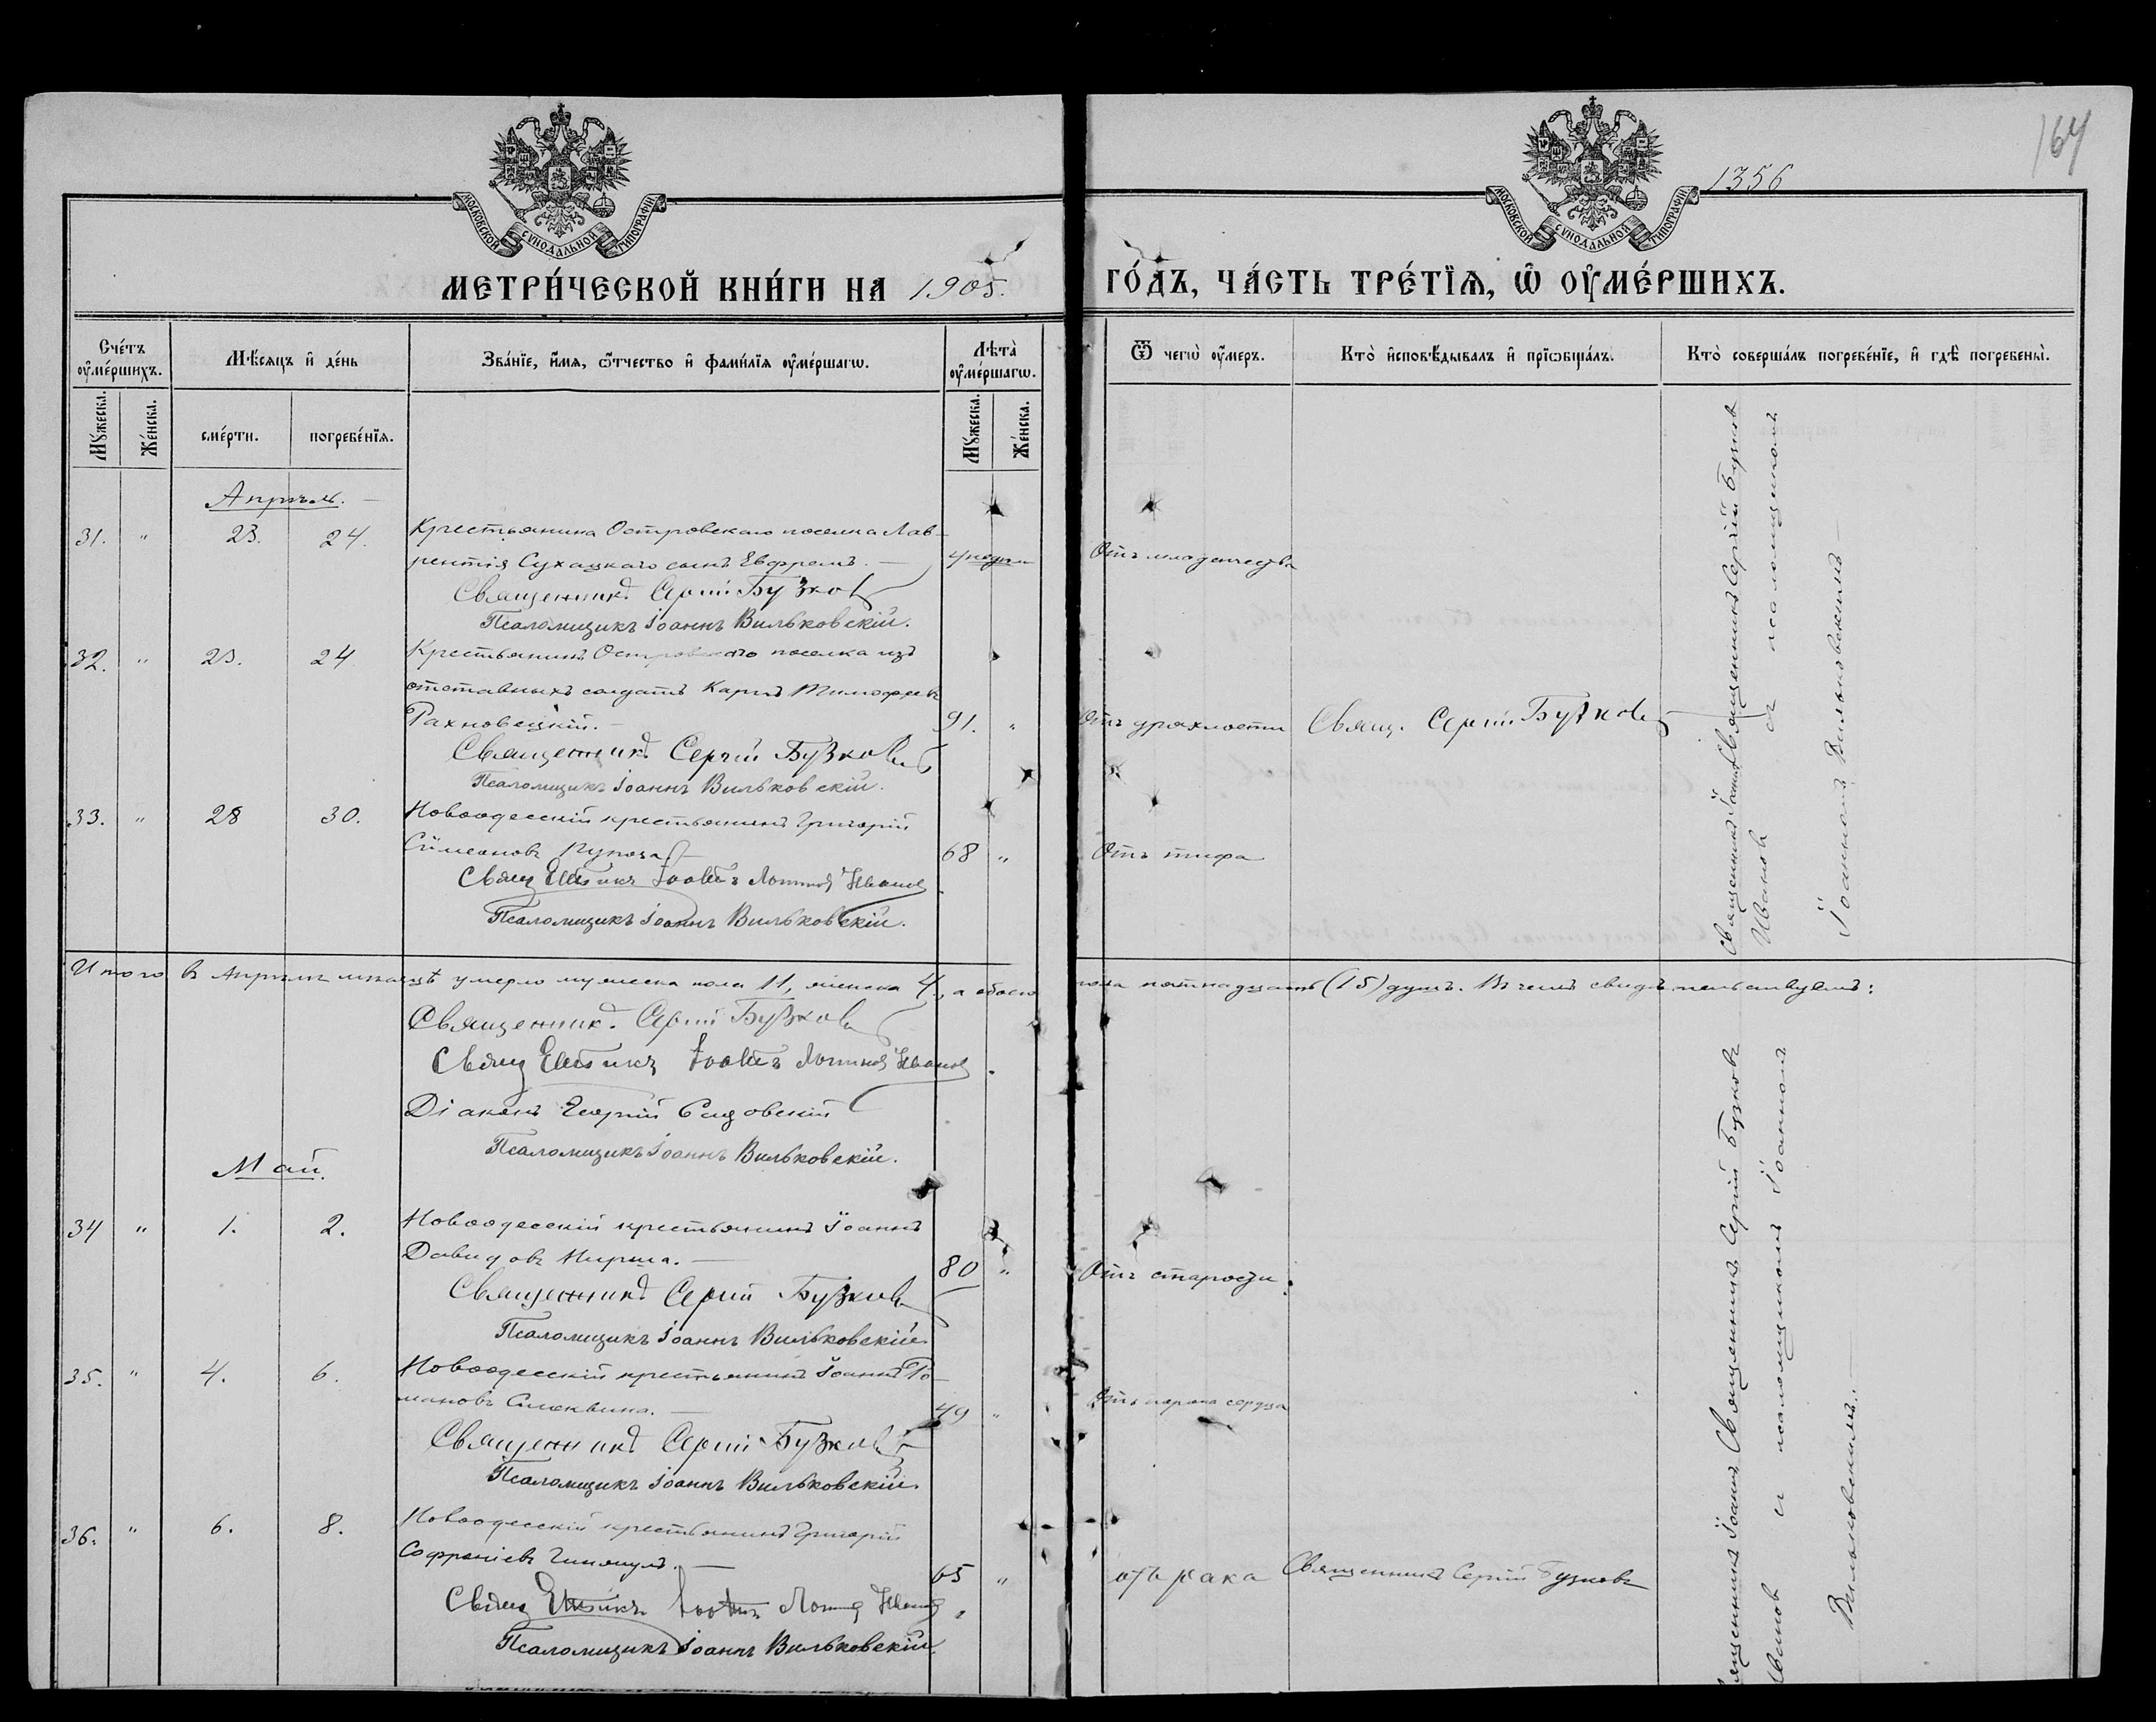 164
1356
МОСКОВСКОЙ СѴНОДАЛЬНОЙ ТИПОГРАФІИ
МОСКОВСКОЙ СѴНОДАЛЬНОЙ ТИПОГРАФІИ
МЕТРИ́ЧЕСКОЙ КНИ́ГИ НА 1905. ГО́ДЪ, ЧА́СТЬ ТРЕ́ТЇѦ, Ѡ҆ ОУ҆МЕ́РШИХЪ.
Сче́тъ оу҆ме́ршихъ.
Мѣ́сяцъ и҆ де́нь
Зва́нїе, и҆́мя, ѻ҆́тчество и҆ фами́лїя оу҆ме́ршагѡ.
Лѣта̀ оу҆ме́ршагѡ.
Ѿ чегѡ̀ оу҆́меръ.
Кто̀ и҆сповѣ́дывалъ и҆ прїѡбща́лъ.
Кто̀ соверша́лъ погребе́нїе, и҆ гдѣ̀ погребены̀.
Мꙋ́жеска.
Же́нска.
сме́рти.
погребе́нїя.
Мꙋ́жеска.
Же́нска.
Апрѣль.
31. " 23. 24. Крестьянина Островскаго поселка Лав-
рентія Сухацкаго сынъ Ефремъ. Отъ младенчества
Священникъ Сергій Бузковъ
Псаломщикъ Іоаннъ Вильковскій.
32. " 23. 24 Крестьянинъ Островскаго поселка изъ
отставныхъ солдатъ Карпъ Тимофеевъ
Рахновецкій. 91. " Отъ дряхлости Свящ. Сергій Бузковъ
Священникъ Сергій Бузковъ
Псаломщикъ Іоаннъ Вильковскій.
33. " 28 30. Новоодесскій крестьянинъ Григорій
Сѵмеоновъ 68 " Отъ тифа
Священникъ Іоаннъ Ивановъ
Псаломщикъ Іоаннъ Вильковскій.
Священникъ Іоаннъ Священникъ Сергій Бузковъ
Ивановъ съ псаломщикомъ
Іоанномъ Вильковскимъ
Итого въ Апрѣлѣ мѣсяцѣ умерло мужеска пола 11, женска 4, а обоего пола пятнадцать (15) душъ. Въ чемъ свидѣтельствуемъ:
Священникъ Сергій Бузковъ
Священникъ Іоаннъ Ивановъ
Діаконъ Георгій
Псаломщикъ Іоаннъ Вильковскій.
Май.
34 " 1. 2. Новоодесскій крестьянинъ Іоаннъ
Давидовъ Кирша. 80 " Отъ старости.
Священникъ Сергій Бузковъ
Псаломщикъ Іоаннъ Вильковскій.
35. " 4. 6. Новоодесскій крестьянинъ Іоаннъ Ро-
мановъ 49 " Отъ порока сердца
Священникъ Сергій Бузковъ
Псаломщикъ Іоаннъ Вильковскій.
36. " 6. 8. Новоодесскій крестьянинъ Григорій
Софроніевъ 65 " отъ рака Священникъ Сергій Бузковъ
Священникъ Іоаннъ Ивановъ
Псаломщикъ Іоаннъ Вильковскій.
Священникъ Іоаннъ Священникъ Сергій Бузковъ
Ивановъ съ псаломщикомъ Іоанномъ
Вильковскимъ.